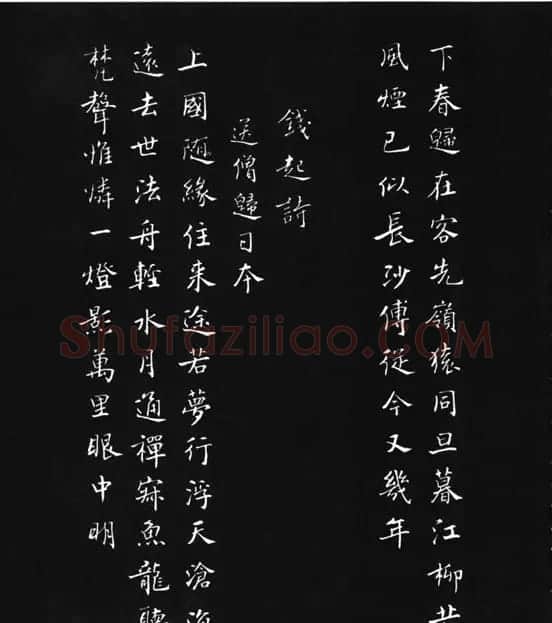 下春歸在客先嶺猿同旦暮江柳共
風煙已似長沙傅從今又幾年
錢起詩
送僧歸日本
上國隨緣住來途若夢行浮天滄海
遠去世法舟輕水月通禪寂魚龍聽
梵聲惟憐一燈影萬里眼中明
Shufaziliao.com